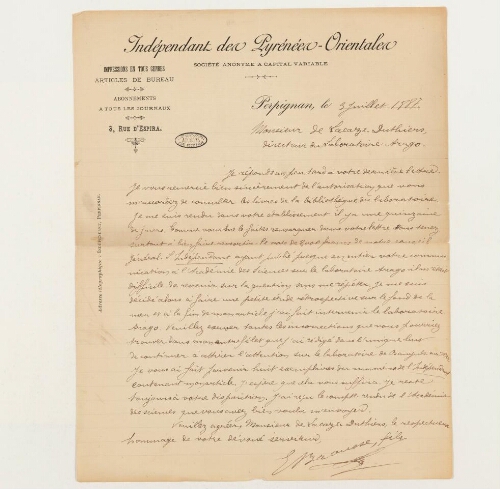 Indépendant des Pyrénées-Orientales
SOCIÉTÉ ANONYME A CAPITAL VARIABLE
IMPRESSIONS EN TOUS GENRES
ARTICLES DE BUREAU
ABONNEMENTS
A TOUS LES JOURNAUX
3, RUE D'ESPIRA.
Perpignan, le 3 Juillet 188
Monsieur de Lacaze Duthiers,
directeur du Laboratoire Arago.
Je réponds un peu tard à votre dernière lettre.
Je vous remercie bien sincèrement de l'autorisation que vous
m'accordez de consulter les livres de la bibliothèque du laboratoire.
Je me suis rendu dans votre établissement il y a une quinzaine
de jours. Comme vous le faites remarquer dans votre lettre vous tenez
surtout à bien faire ressortir le vote de fr de notre conseil
général. L'Indépendant ayant publié presque en entier votre commu-
nication à l'Académie des Sciences sur le laboratoire Arago il lui était
difficile de revenir sur la question sans me répéter. Je me suis
décidé alors à faire une petite étude rétrospective sur le fond de la
mer et à la fin de mon article j'ai fait intervenir le laboratoire
Arago. Veuillez excuser toutes les incorrections que vous pourriez
trouver dans mon que j'ai rédigé dans l'unique but
de continuer à attirer l'attention sur le laboratoire de Banyuls
Je vous ai fait parvenir huit exemplaires des numéros de l'Indépendant
contenant mon article. J'espère que cela vous suffira. Je reste
toujours à votre disposition. J'ai reçu le compte rendu de l'Académie
des sciences que vous avez bien voulu m'envoyer.
Veuillez agréer, Monsieur de Lacaze Duthiers, le respectueux
hommage de votre dévoué serviteur
fils